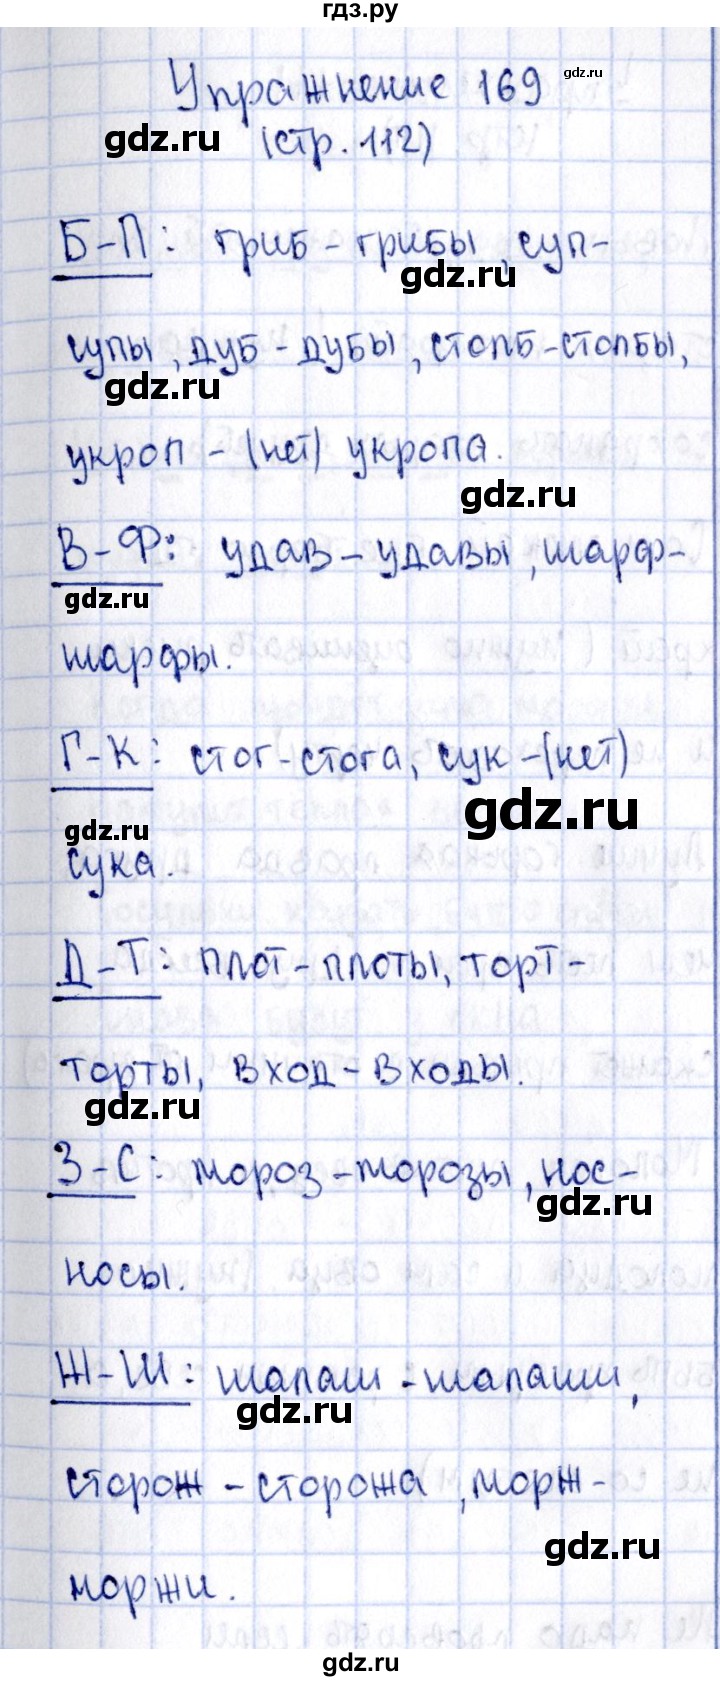 гдз.ру
Упражнение 169
gdz.ru
gdz.ru
(стр. 112)
Б-П: гриб - грибы, суп-
gdz.ru
супы, дуб - дубы, столб-столбы,
gdz.ru
укроп - (нет) укропа.
gdz.ru
В-Ф: удав - удавы, шарф-
gdz.ru
шарфы.
Г-К: стог-стога, сук-(нет)
gdz.ru
gdz.ru
сука.
Д-Т: плот-плоты, торт-
торты, вход-входы.
gdz.ru
З-С: мороз-морозы, нос-
gdz.ru
носы.
Ж-Ш: шалаш -шалаши,
gdz.ru
сторож - сторожа, морж-
gdz.ru
моржи.
gdz.ru